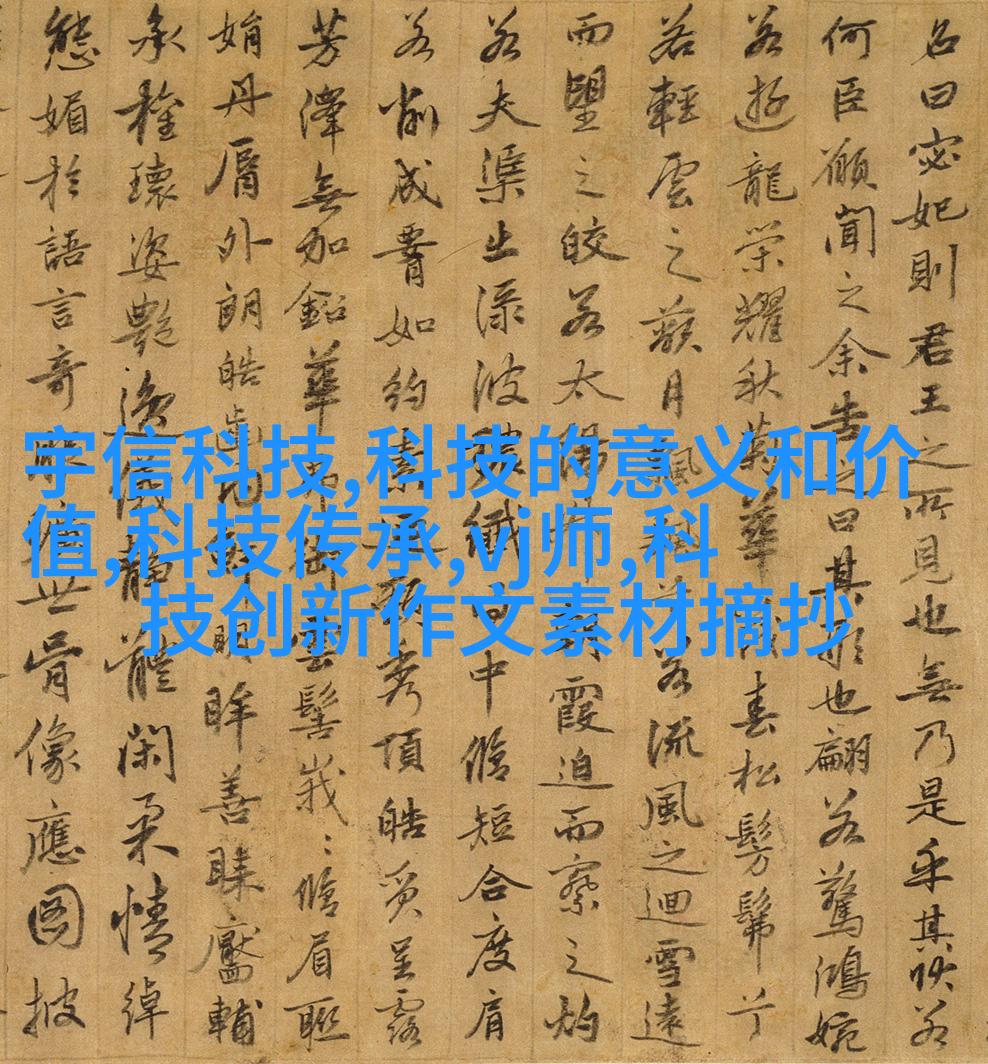 名曰宓妃則君王之所見也無乃是乎其狀若
何臣願聞之余告之曰其形也翩若驚鴻婉
若遊龍榮耀秋菊華茂春松髣髴兮
若輕雲之蔽月飄飖兮若流風之迴雪遠
而望之皎若太陽升朝霞迫而察之灼
若夫渠出淥波穠纖得中脩短合度肩
若削成腰如約素延頸秀項皓質呈露
芳澤無加鉛華弗御雲髻峩〻脩眉聯
娟丹脣外朗皓齒內鮮明眸善睞靨輔
承權瓌姿艷逸儀靜體閑柔情綽
態媚於語言奇服曠世骨像應圖披
宇信科技,科技的意义和价
值,科技传承,vj师,科
技创新作文素材摘抄